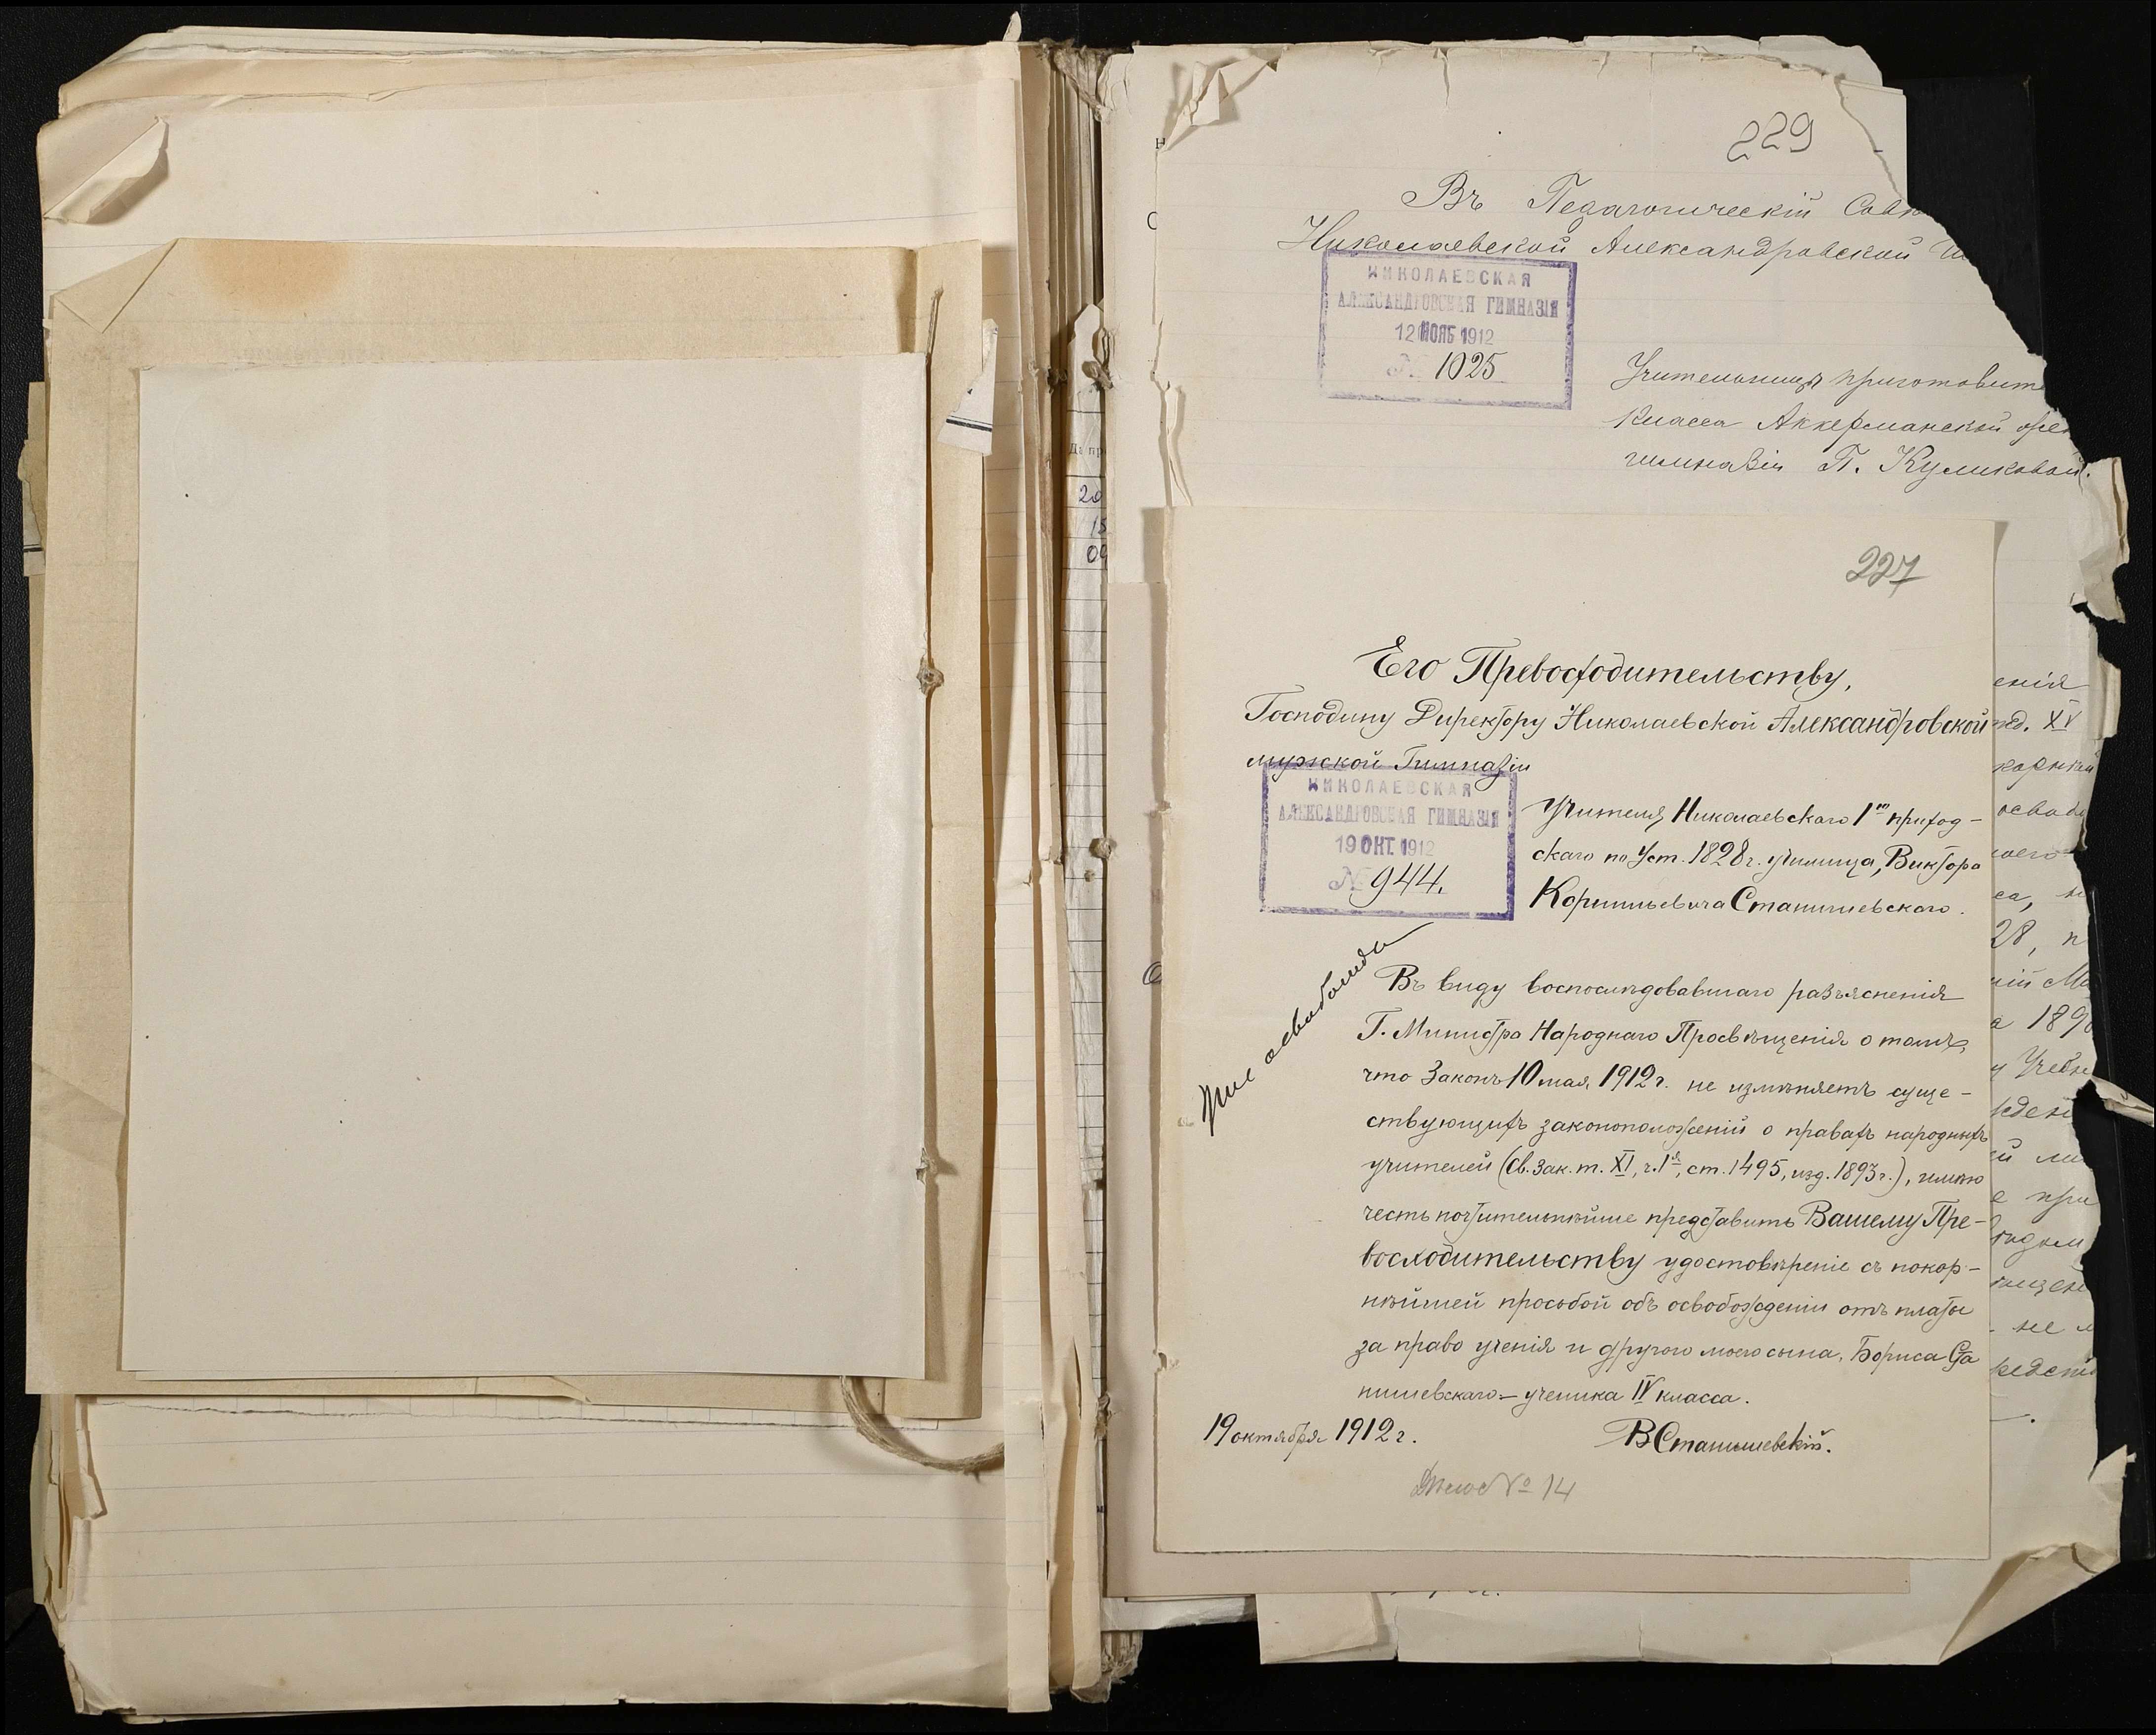 229
Въ Педагогическій Сов
Николаевской Александровской
НИКОЛАЕВСКАЯ
АЛЕКСАНДРОВСКАЯ ГИМНАЗІЯ
12 НОЯБ 1912
№ 1025
Учительницы приготовит
класса Аккерманской жен
гимназіи П. Куликовой.
227
Его Превосходительству,
Господину Директору Николаевской Александровской
мужской Гимназіи
НИКОЛАЕВСКАЯ
АЛЕКСАНДРОВСКАЯ ГИМНАЗІЯ
19 ОКТ. 1912
№ 944.
Учителя Николаевскаго 1го приход-
скаго по Уст. 1828 г. училища, Виктора
Корнильевича Станишевскаго.
Въ виду воспослѣдовавшаго разъясненія
Г. Министра Народнаго Просвѣщенія о томъ,
что Законъ 10 мая 1912 г. не измѣняетъ суще-
ствующихъ законоположеній о правахъ народныхъ
учителей (Св. Зак. т. XI, ч. 1я, ст. 1495, изд. 1893 г.), имѣю
честь почтительнѣйше представить Вашему Пре-
восходительству удостовѣреніе съ покор-
нѣйшей просьбой объ освобожденіи отъ платы
за право ученія и другого моего сына, Бориса Ста
нишевскаго – ученика IV класса.
19 октября 1912 г.
ВСтанишевскій.
Дѣло № 14
енія
XV
28, п
а 189
Да пр
20
15